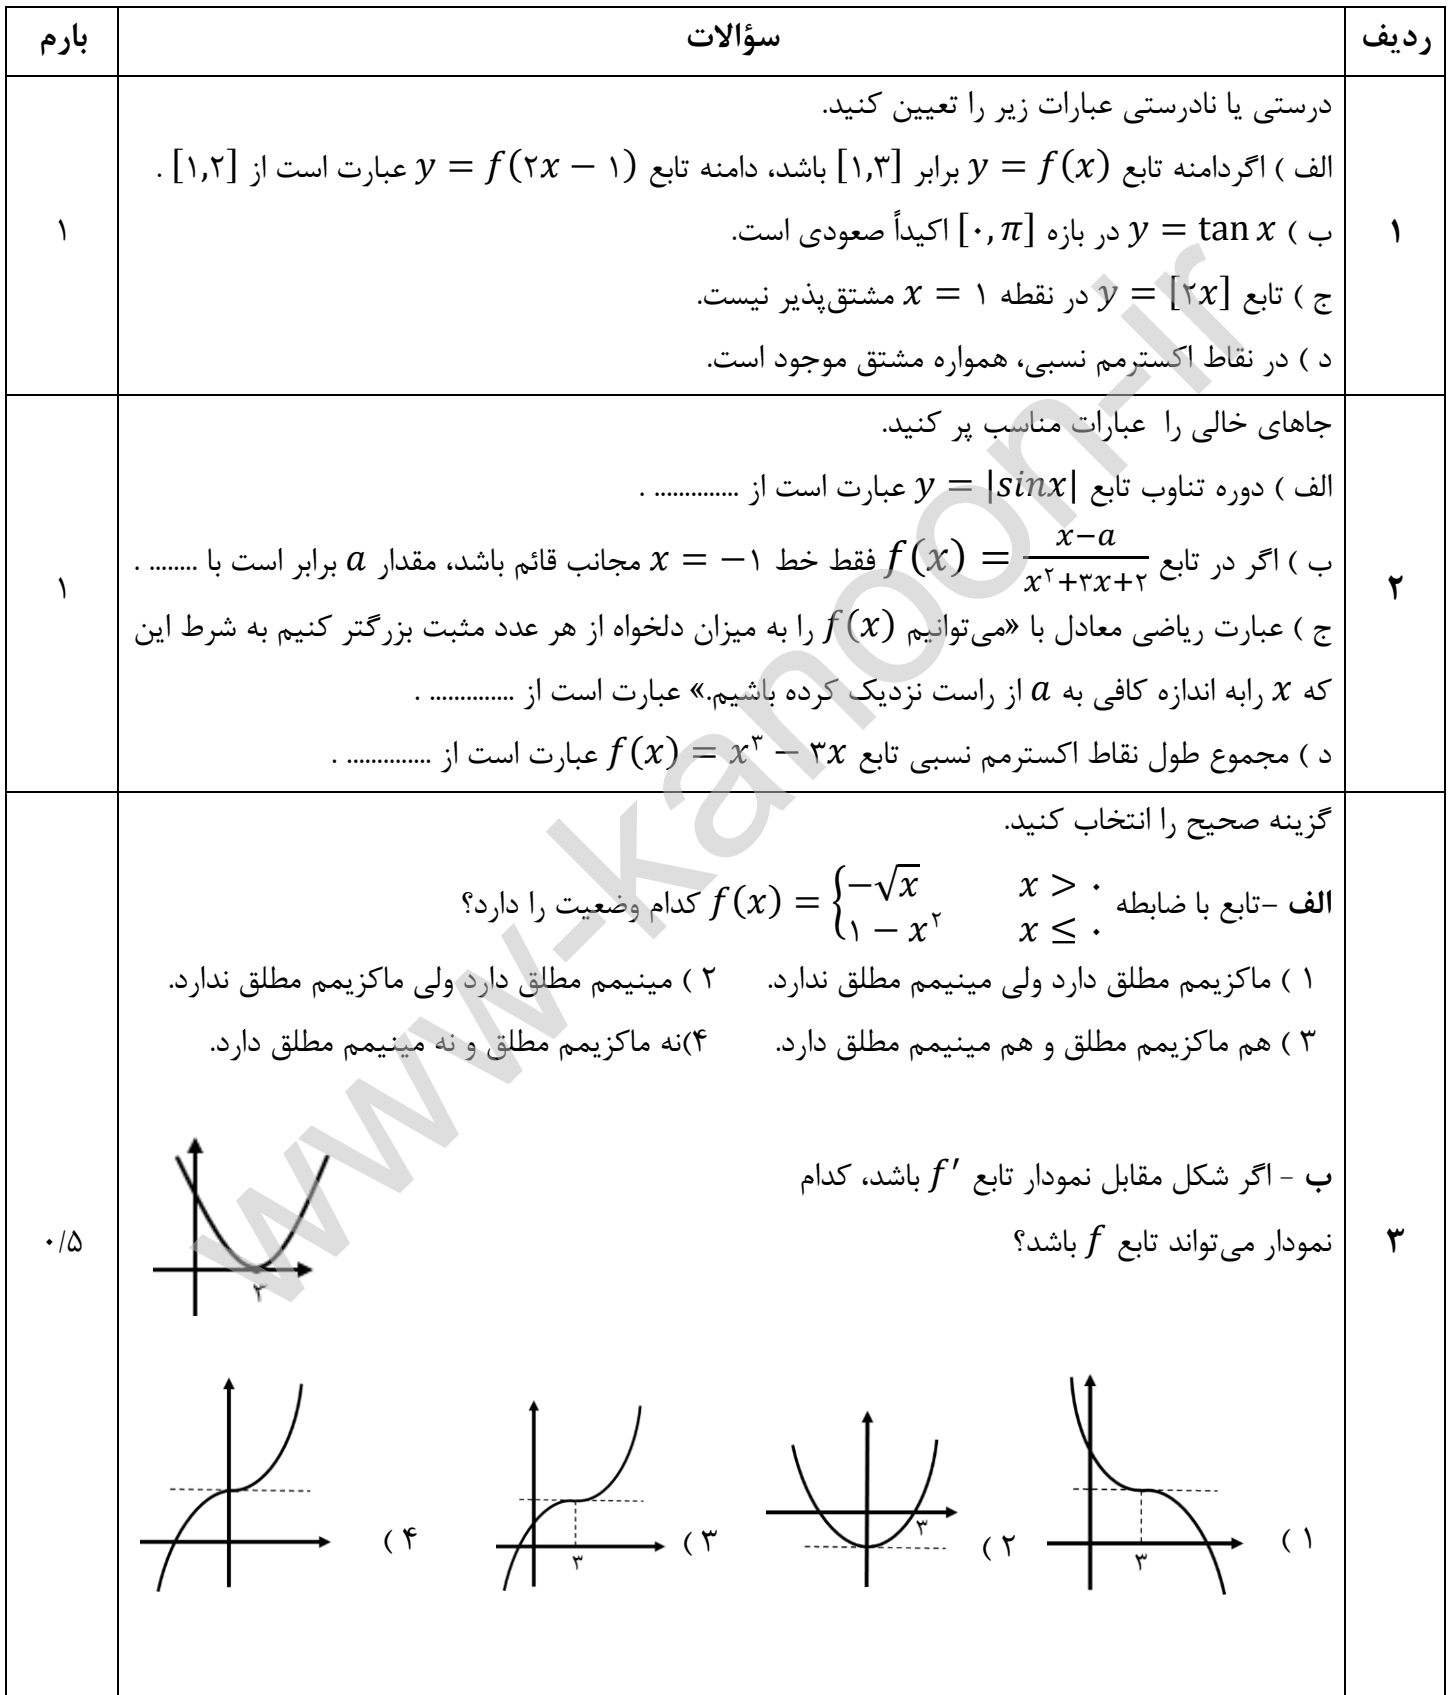 ردیف سؤالات بارم
درستی یا نادرستی عبارات زیر را تعیین کنید.
الف ) اگردامنه تابع y = f(x) برابر [۱,۳] باشد، دامنه تابع y = f(۲x − ۱) عبارت است از [۱,۲] .
ب ) y = tan x در بازه [۰, π] اکیداً صعودی است.
۱ ۱
ج ) تابع y = [۲x] در نقطه x = ۱ مشتق‌پذیر نیست.
د ) در نقاط اکسترمم نسبی، همواره مشتق موجود است.
جاهای خالی را عبارات مناسب پر کنید.
الف ) دوره تناوب تابع y = |sinx| عبارت است از .............. .
ب ) اگر در تابع f(x) = (x−a)/(x^۲+۳x+۲) فقط خط x = −۱ مجانب قائم باشد، مقدار a برابر است با ........ .
۲ ۱
ج ) عبارت ریاضی معادل با «می‌توانیم f(x) را به میزان دلخواه از هر عدد مثبت بزرگتر کنیم به شرط این
که x رابه اندازه کافی به a از راست نزدیک کرده باشیم.» عبارت است از .............. .
د ) مجموع طول نقاط اکسترمم نسبی تابع f(x) = x^۳ − ۳x عبارت است از .............. .
گزینه صحیح را انتخاب کنید.
الف -تابع با ضابطه f(x) = { −√x x > ۰
۱ − x^۲ x ≤ ۰ کدام وضعیت را دارد؟
۱ ) ماکزیمم مطلق دارد ولی مینیمم مطلق ندارد. ۲ ) مینیمم مطلق دارد ولی ماکزیمم مطلق ندارد.
۳ ) هم ماکزیمم مطلق و هم مینیمم مطلق دارد. ۴)نه ماکزیمم مطلق و نه مینیمم مطلق دارد.
ب - اگر شکل مقابل نمودار تابع f′ باشد، کدام
نمودار می‌تواند تابع f باشد؟
۳ ۰/۵
۳
۱ ) ۳
۲ ) ۳
۳ ) ۳
۴ )
www-kanoon-ir